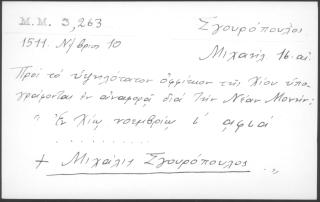 M.M. 3,263
Σγουρόπουλος
1511. Ν/βρίου 10
Μιχαήλ 16. αἰ.
Πρὸς τὸ ὑψηλότατον ὀφφίκιον τῆς Χίου ὑπο-
γράφονται ἐν ἀναφορᾷ διὰ τὴν Νέαν Μονήν:
"Ἐν Χίῳ νοεμβρίῳ ι´ αφια
. . . . . . . . .
+ Μιχαήλις Σγουρόπουλος "